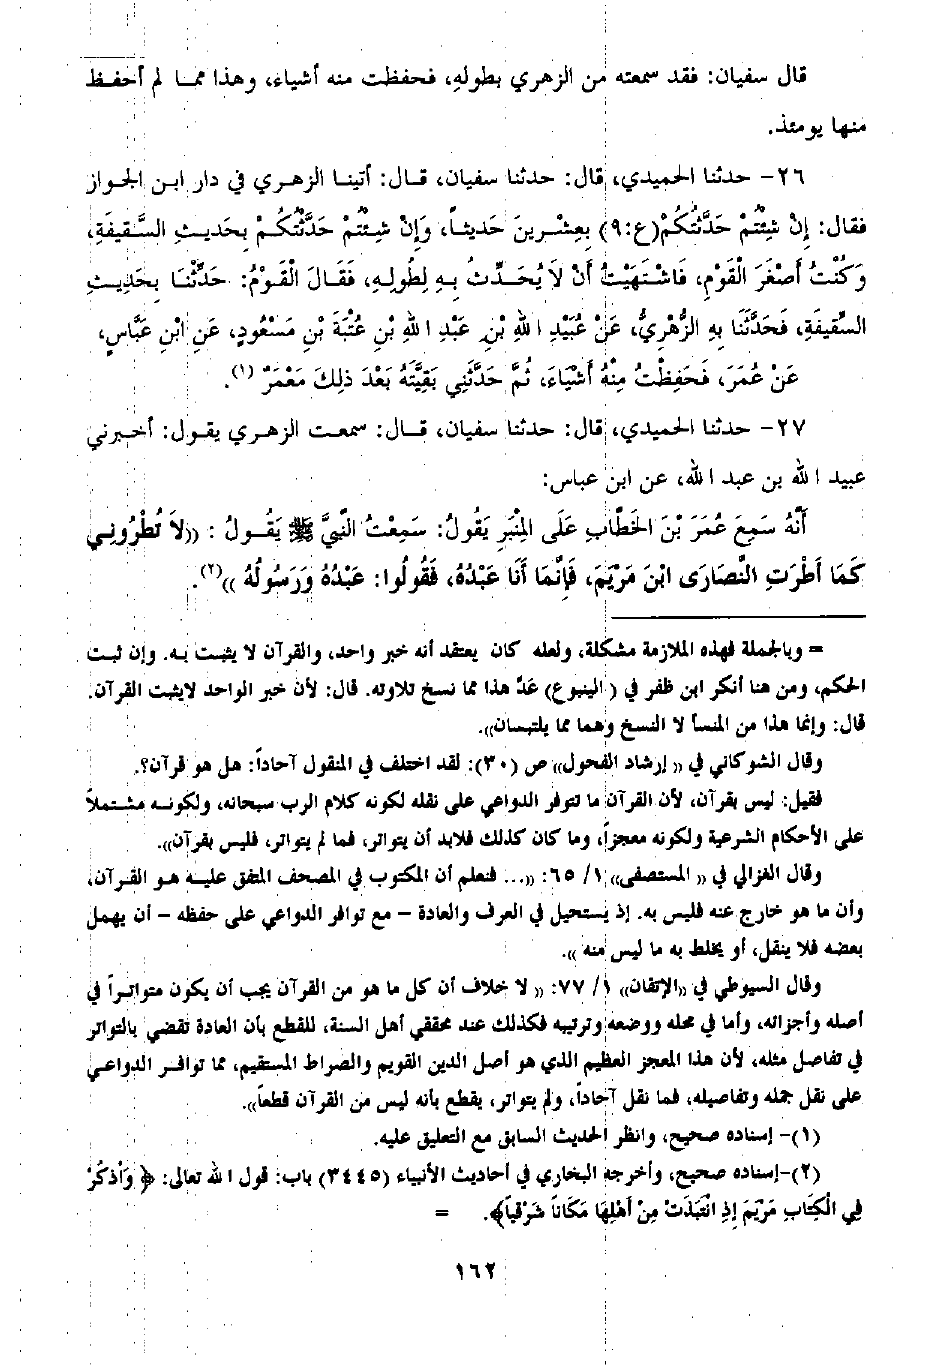 قال سفيان: فقد سمعته من الزهري بطوله، فحفظت منه أشياء، وهذا مما لم أحفظ
منها يومئذ.
٢٦- حدثنا الحميدي، قال: حدثنا سفيان، قال: أتينا الزهري في دار ابن الجواز
فقال: إِنْ شِئْتُمْ حَدَّثْتُكُمْ(ع:٩) بِعِشْرِينَ حَدِيثاً، وَإِنْ شِئْتُمْ حَدَّثْتُكُمْ بِحَدِيثِ السَّقِيفَةِ،
وَكُنْتُ أَصْغَرَ الْقَوْمِ، فَاشْتَهَيْتُ أَنْ لاَ يُحَدِّثَ بِهِ لِطُولِهِ، فَقَالَ الْقَوْمُ: حَدِّثْنَا بِحَدِيثِ
السَّقِيفَةِ، فَحَدَّثَنَا بِهِ الزُّهْرِيُّ، عَنْ عُبَيْدِ اللهِ بْنِ عَبْدِ اللهِ بْنِ عُتْبَةَ بْنِ مَسْعُودٍ، عَنِ ابْنِ عَبَّاسٍ،
عَنْ عُمَرَ، فَحَفِظْتُ مِنْهُ أَشْيَاءَ، ثُمَّ حَدَّثَنِي بَقِيَّتَهُ بَعْدَ ذلِكَ مَعْمَرٌ (١).
٢٧- حدثنا الحميدي، قال: حدثنا سفيان، قال: سمعت الزهري يقول: أخبرني
عبيد الله بن عبد الله، عن ابن عباس:
أَنَّهُ سَمِعَ عُمَرَ بْنَ الخَطَّابِ عَلَى المِنْبَرِ يَقُولُ: سَمِعْتُ النَّبِيَّ ﷺ يَقُولُ : ((لاَ تُطْرُونِي
كَمَا أَطْرَتِ النَّصَارَى ابْنَ مَرْيَمَ، فَإِنَّمَا أَنَا عَبْدُهُ، فَقُولُوا: عَبْدُهُ وَرَسُولُهُ ))(٢).
= وبالجملة فهذه الملازمة مشكلة، ولعله كان يعتقد أنه خبر واحد، والقرآن لا يثبت به. وإن ثبت
الحكم، ومن هنا أنكر ابن ظفر في ( الينبوع) عَدَّ هذا مما نسخ تلاوته. قال: لأن خبر الواحد لايثبت القرآن.
قال: وإنما هذا من المنسأ لا النسخ وهما مما يلتبسان)).
وقال الشوكاني في (( إرشاد الفحول)) ص (٣٠): لقد اختلف في المنقول آحاداً: هل هو قرآن؟.
فقيل: ليس بقرآن، لأن القرآن ما تتوفر الدواعي على نقله لكونه كلام الرب سبحانه، ولكونه مشتملاً
على الأحكام الشرعية ولكونه معجزاً، وما كان كذلك فلابد أن يتواتر، فما لم يتواتر، فليس بقرآن)).
وقال الغزالي في (( المستصفى)) ١/ ٦٥: ((... فنعلم أن المكتوب في المصحف المتفق عليه هو القرآن،
وأن ما هو خارج عنه فليس به. إذ يستحيل في العرف والعادة - مع توافر الدواعي على حفظه - أن يهمل
بعضه فلا ينقل، أو يخلط به ما ليس منه )).
وقال السيوطي في ((الإتقان)) ١/ ٧٧: (( لا خلاف أن كل ما هو من القرآن يجب أن يكون متواتراً في
أصله وأجزائه، وأما في محله ووضعه وترتيبه فكذلك عند محققي أهل السنة، للقطع بأن العادة تقضي بالتواتر
في تفاصل مثله، لأن هذا المعجز العظيم الذي هو أصل الدين القويم والصراط المستقيم، مما توافر الدواعي
على نقل جمله وتفاصيله، فما نقل آحاداً، ولم يتواتر، يقطع بأنه ليس من القرآن قطعاً)).
(١)- إسناده صحيح، وانظر الحديث السابق مع التعليق عليه.
(٢)-إسناده صحيح، وأخرجه البخاري في أحاديث الأنبياء (٣٤٤٥) باب: قول الله تعالى: ﴿ وَاذْكُرْ
فِي الْكِتَابِ مَرْيَمَ إِذِ انْتَبَذَتْ مِنْ أَهْلِهَا مَكَاناً شَرْقِياً﴾. =
١٦٢